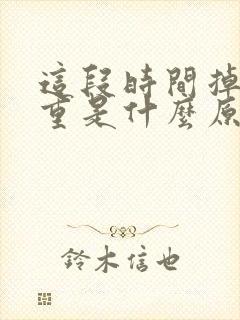 這段時間掉
重是什麼原
鈴木信也